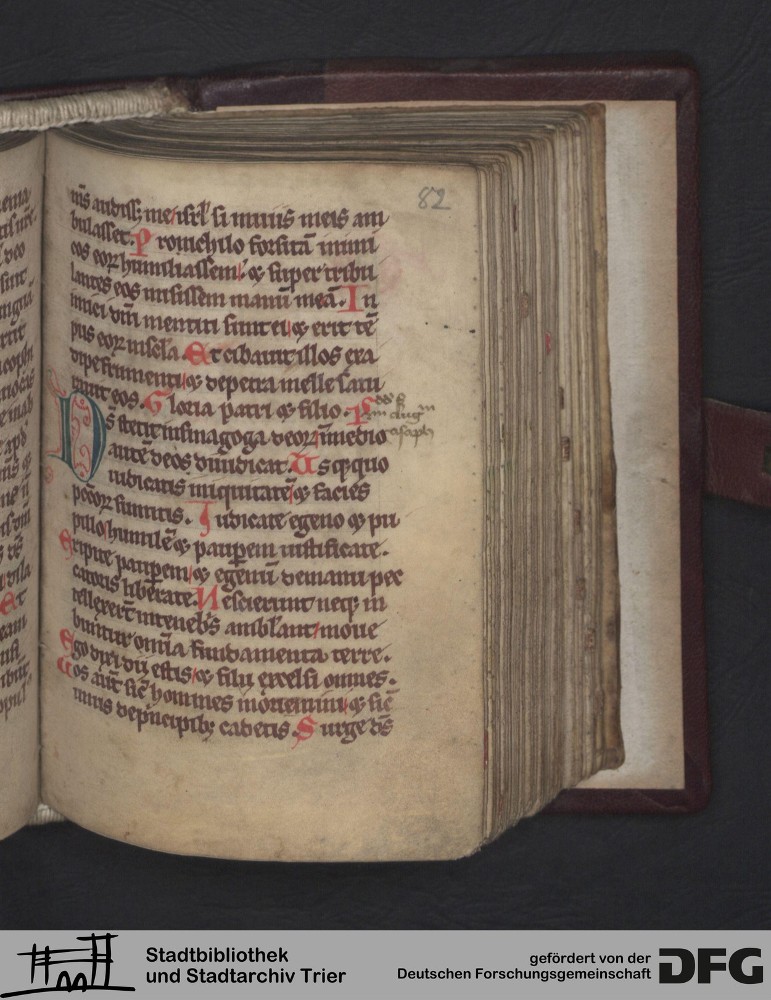 82
mͥs audiss; me isrl̕ si in uiis meis am
bulasset. P ro nichilo forsitā inimi
cos eoꝝ humiliassem ⁊ super tribu
lantes eos misissem manū meā. I n
imici dn̄i mentiti sunt ei ⁊ erit tē
pus eoꝝ in scl̄a Et cibauit illos exa
dipe frumenti ⁊ de petra melle satu
rauit eos. G loria patri ⁊ filio. P
D s̄ stetit in sinagoga deoꝝ in medio
autē deos diiudicat. U s q̨quo
iudicatis iniquitatē ⁊ facies
pc̄ōꝝ sumitis. I udicate egeno ⁊ pu
pillo humilē ⁊ paup̄em iustificate.
Eripite paup̄em ⁊ egenū de manu pec
catoris liberate. N escierunt neq; in
tellexer̄t in tenebͥs ambl̄ant moue
buntur om̄ia fundamenta terre.
Ego dixi dii estis ⁊ filii excelsi omnes.
Uos aūt sic̄ homines moriemini ⁊ sic̄
unus de pͥncipib; cadetis. S urge ds̄
asaph
Stadtbibliothek
und Stadtarchiv Trier
gefördert von der
Deutschen Forschungsgemeinschaft
DFG